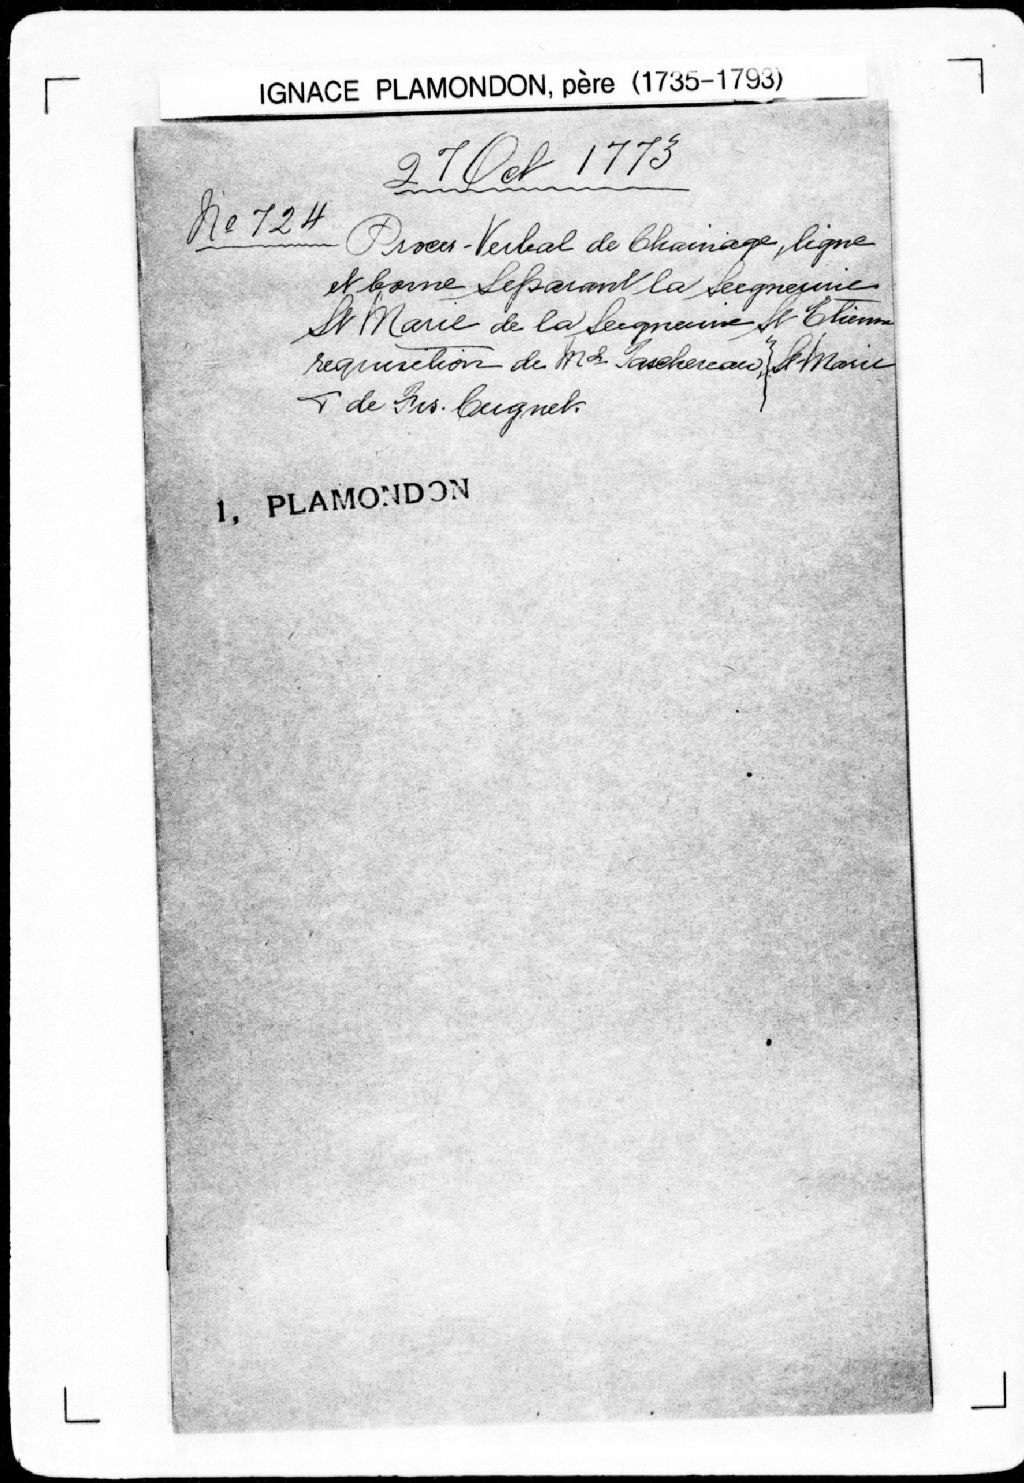 IGNACE PLAMONDON, père (1735-1793)
27 Oct 1773
No 724
Proces-Verbal de Chainage, ligne
et borne separant la Seigneurie
St Marie de la Seigneurie St Etienne
requisition de Md Taschereau, } St Marie
& de Frs. Cugnet.
1, PLAMONDON